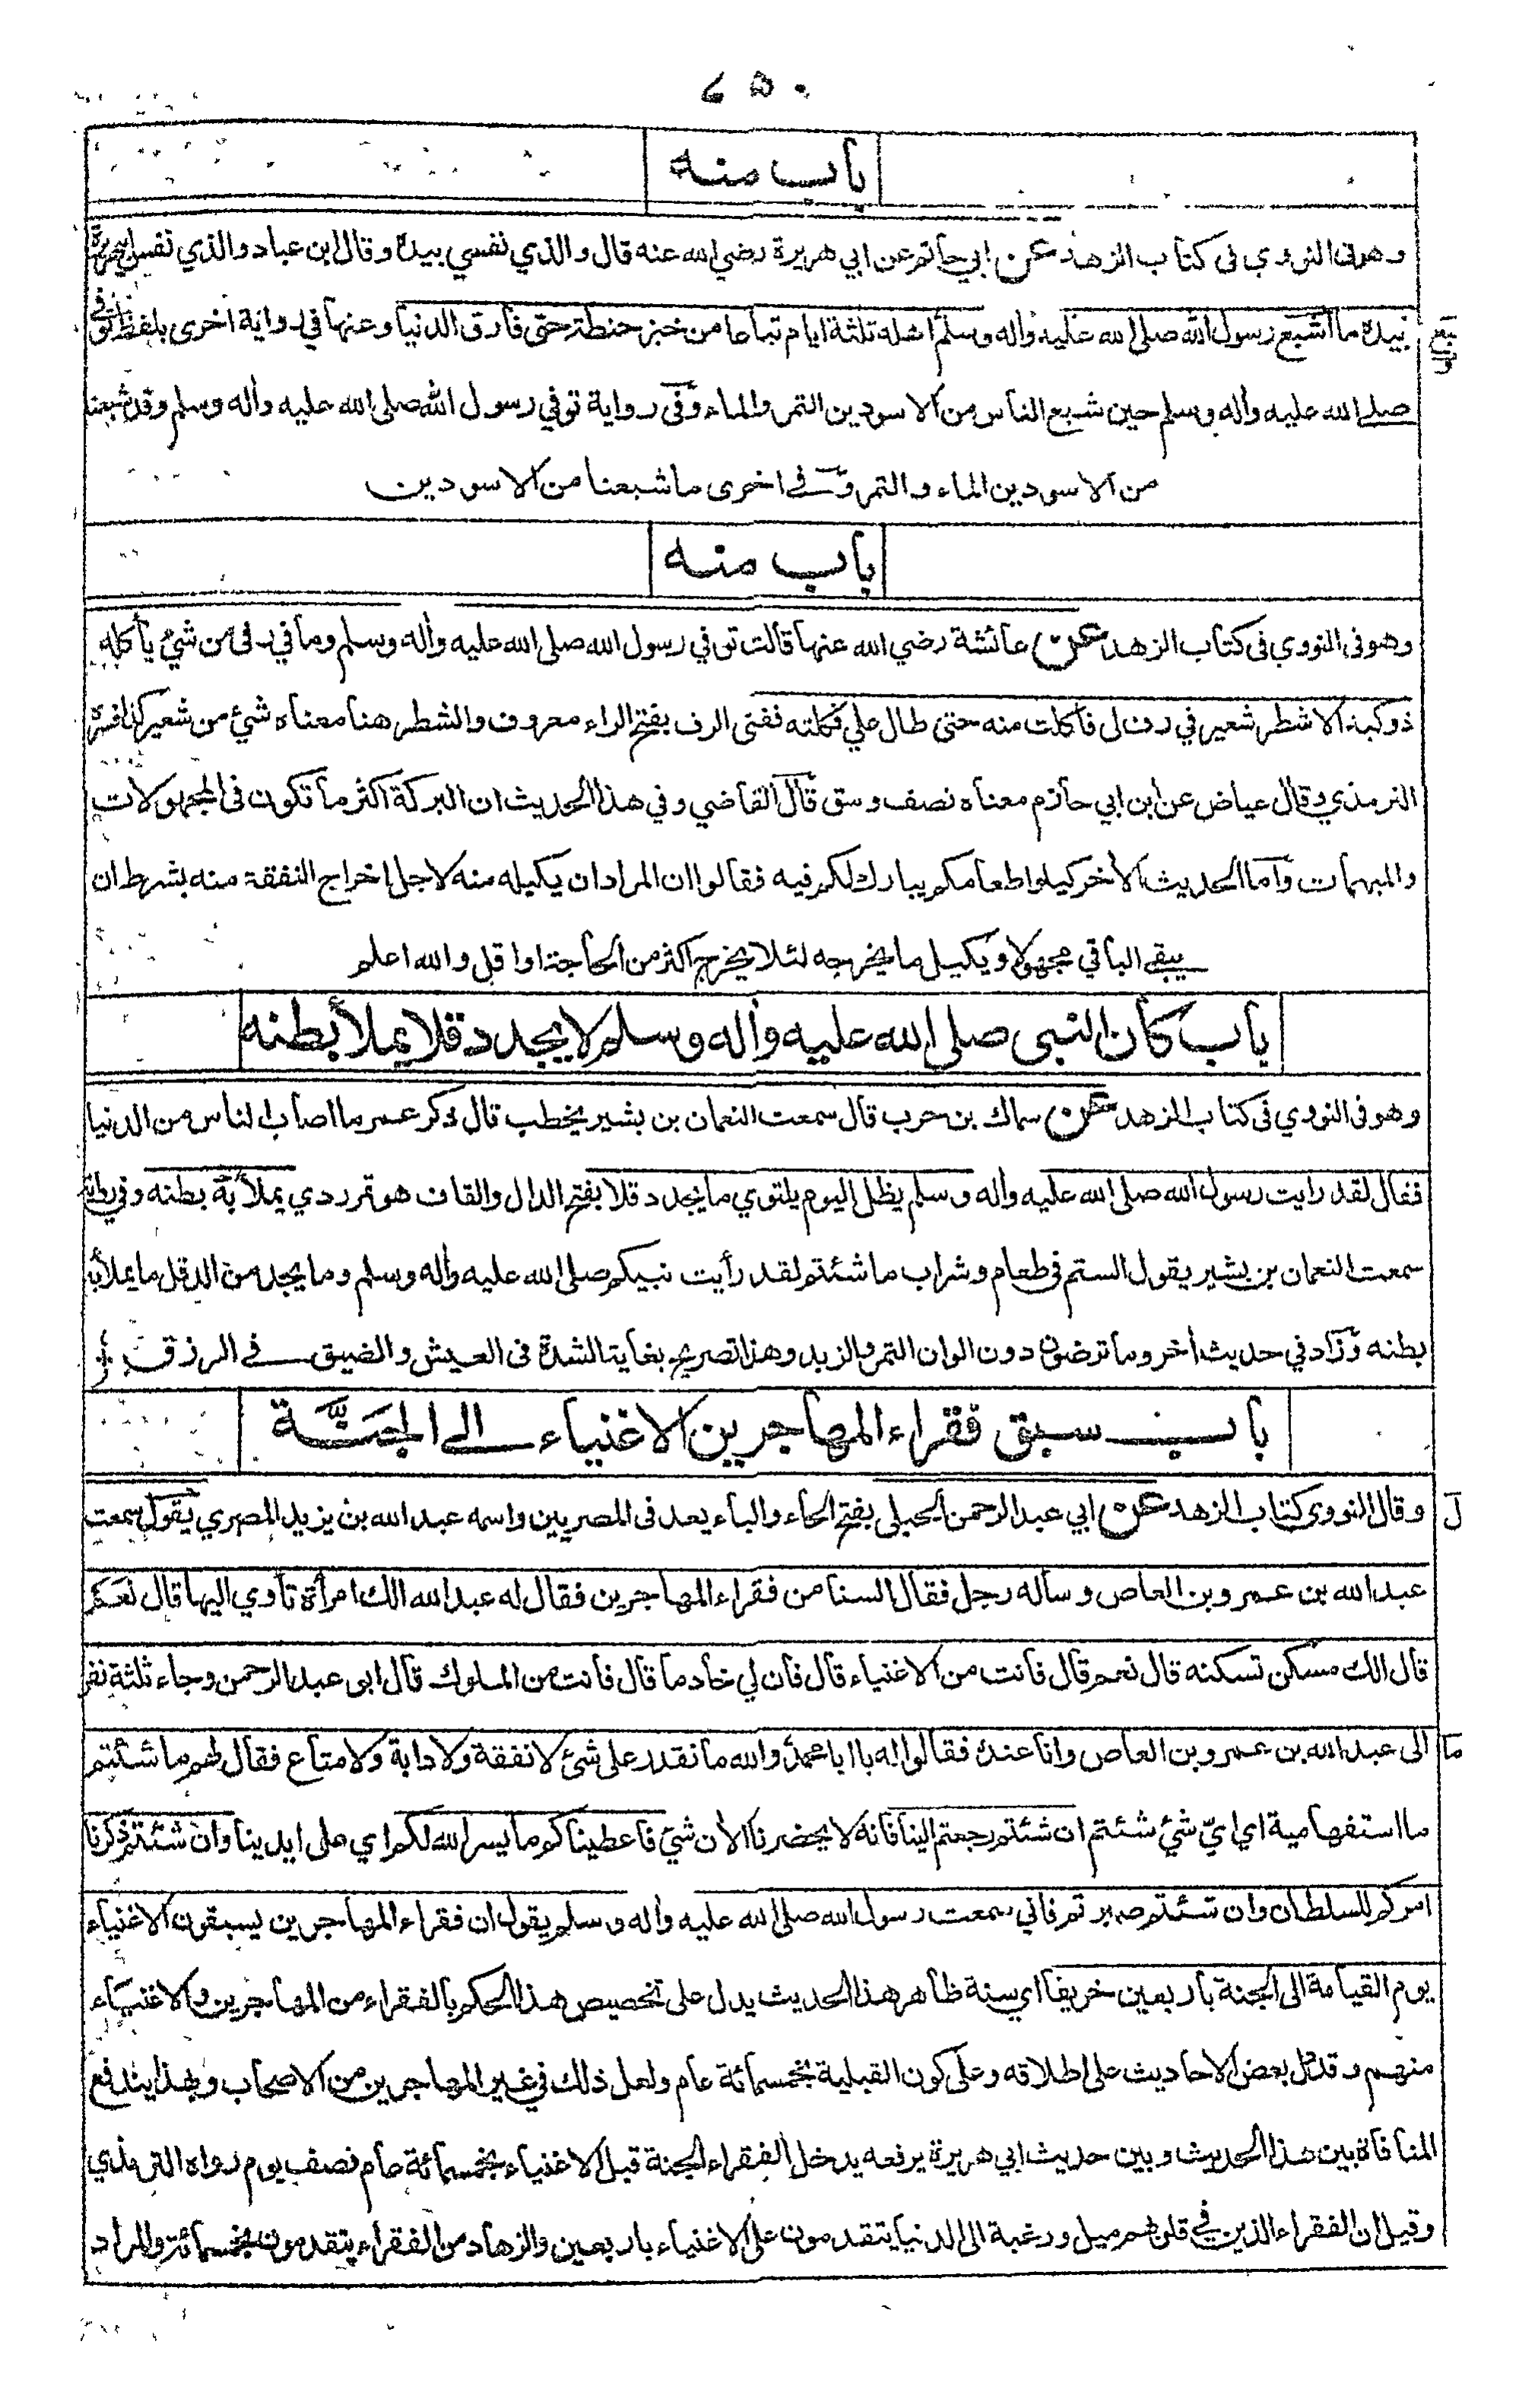 ٧٥٠
باب منه
وهو في النووي في كتاب الزهد عن ابي حاتم عن ابي هريرة رضي الله عنه قال والذي نفسي بيده وقال ابن عباد والذي نفس ابي هريرة
بيده ما اشبع رسول الله صلى الله عليه واله وسلم اهله ثلثة ايام تباعا من خبز حنطة حتى فارق الدنيا وعنها في رواية اخرى بلفظ توفي
شبع
صلى الله عليه واله وسلم حين شبع الناس من الاسودين التمر والماء وفي رواية توفي رسول الله صلى الله عليه واله وسلم وقد شبعنا
من الاسودين الماء والتمر وفي اخرى ما شبعنا من الاسودين
باب منه
وهو في النووي في كتاب الزهد عن عائشة رضي الله عنها قالت توفي رسول الله صلى الله عليه واله وسلم وما في رفى من شئ يأكله
ذو كبد الا شطر شعير في رف لى فاكلت منه حتى طال علي فكلته ففنى الرف بفتح الراء معروف والشطر هنا معناه شئ من شعير كذا فسره
الترمذي وقال عياض عن ابن ابي حازم معناه نصف وسق قال القاضي وفي هذا الحديث ان البركة اكثر ما تكون في المجهولات
والمبهمات واما الحديث الاخر كيلوا طعامكم يبارك لكم فيه فقالوا ان المراد ان يكيله منه لاجل اخراج النفقة منه بشرط ان
يبقى الباقي مجهولا ويكيل ما يخرجه لئلا يخرج اكثر من الحاجة او اقل والله اعلم
باب كان النبي صلى الله عليه واله وسلم لا يجد دقلا يملأ بطنه
وهو في النووي في كتاب الزهد عن سماك بن حرب قال سمعت النعمان بن بشير يخطب قال ذكر عمر ما اصاب الناس من الدنيا
فقال لقد رايت رسول الله صلى الله عليه واله وسلم يظل اليوم يلتوي ما يجد دقلا بفتح الدال والقاف هو تمر ردي يملأ به بطنه وفي رواية
سمعت النعمان بن بشير يقول الستم في طعام وشراب ما شئتم لقد رأيت نبيكم صلى الله عليه واله وسلم وما يجد من الدقل ما يملأ به
بطنه وزاد في حديث اخر وما ترضون دون الوان التمر والزبد وهذا تصريح بغاية الشدة في العيش والضيق في الرزق
باب سبق فقراء المهاجرين الاغنياء الى الجنة
وقال النووي كتاب الزهد عن ابي عبد الرحمن الحبلي بفتح الحاء والباء يعد في المصريين واسمه عبد الله بن يزيد المصري يقول سمعت
ل
عبد الله بن عمرو بن العاص وساله رجل فقال السنا من فقراء المهاجرين فقال له عبد الله الك امرأة تأوي اليها قال نعم
قال الك مسكن تسكنه قال نعم قال فانت من الاغنياء قال فان لي خادما قال فانت من الملوك قال ابو عبد الرحمن وجاء ثلثة نفر
الى عبد الله بن عمرو بن العاص وانا عنده فقالوا له يا ابا محمد والله ما نقدر على شئ لا نفقة ولا دابة ولا متاع فقال لهم ما شئتم
ما
ما استفهامية اي ايّ شئ شئتم ان شئتم رجعتم الينا فانه لا يحضرنا الأن شئ فاعطيناكم ما يسر الله لكم اي على ايدينا وان شئتم ذكرنا
امركم للسلطان وان شئتم صبرتم فاني سمعت رسول الله صلى الله عليه واله وسلم يقول ان فقراء المهاجرين يسبقون الاغنياء
يوم القيامة الى الجنة باربعين خريفا اي سنة ظاهر هذا الحديث يدل على تخصيص هذا الحكم بالفقراء من المهاجرين والاغنياء
منهم وقد دل بعض الاحاديث على اطلاقه وعلى كون القبلية بخمسمائة عام ولعل ذلك في غير المهاجرين من الاصحاب وبهذا يندفع
المنافاة بين هذا الحديث وبين حديث ابي هريرة يرفعه يدخل الفقراء الجنة قبل الاغنياء بخمسمائة عام نصف يوم رواه الترمذي
وقيل ان الفقراء الذين في قلوبهم ميل ورغبة الى الدنيا يتقدمون على الاغنياء باربعين والزهاد من الفقراء يتقدمون بخمسمائة والمراد